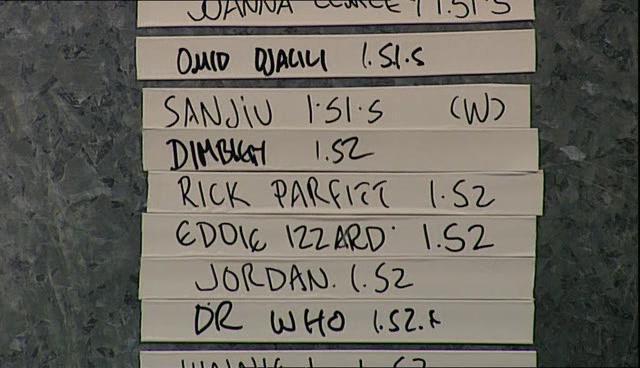 JOANNA 1.51.5
OMID DJALILI 1.51.5
SANJIU 1.51.5 (W)
DIMBLEH 1.52
RICK PARFITT 1.52
EDDIE IZZARD 1.52
JORDAN. 1.52
DR WHO 1.52.